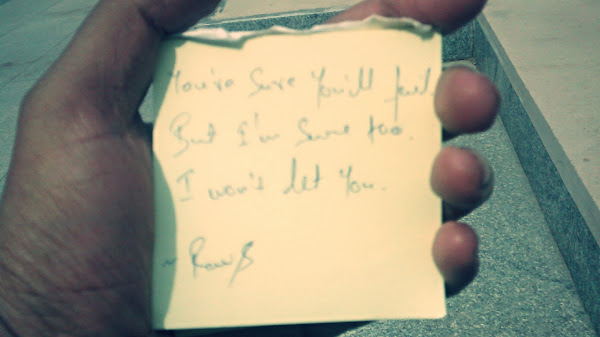 You're Sure You'll fail.
But I'm Sure too.
I won't let You.